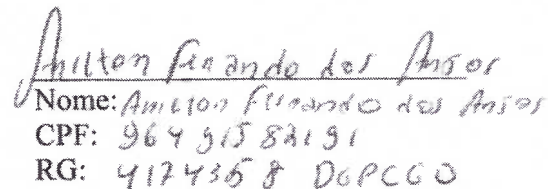 Amilton Fernando dos Anjos
Nome: Amilton Fernando dos Anjos
CPF: 964 915 821 91
RG: 4174358 DGPCGO